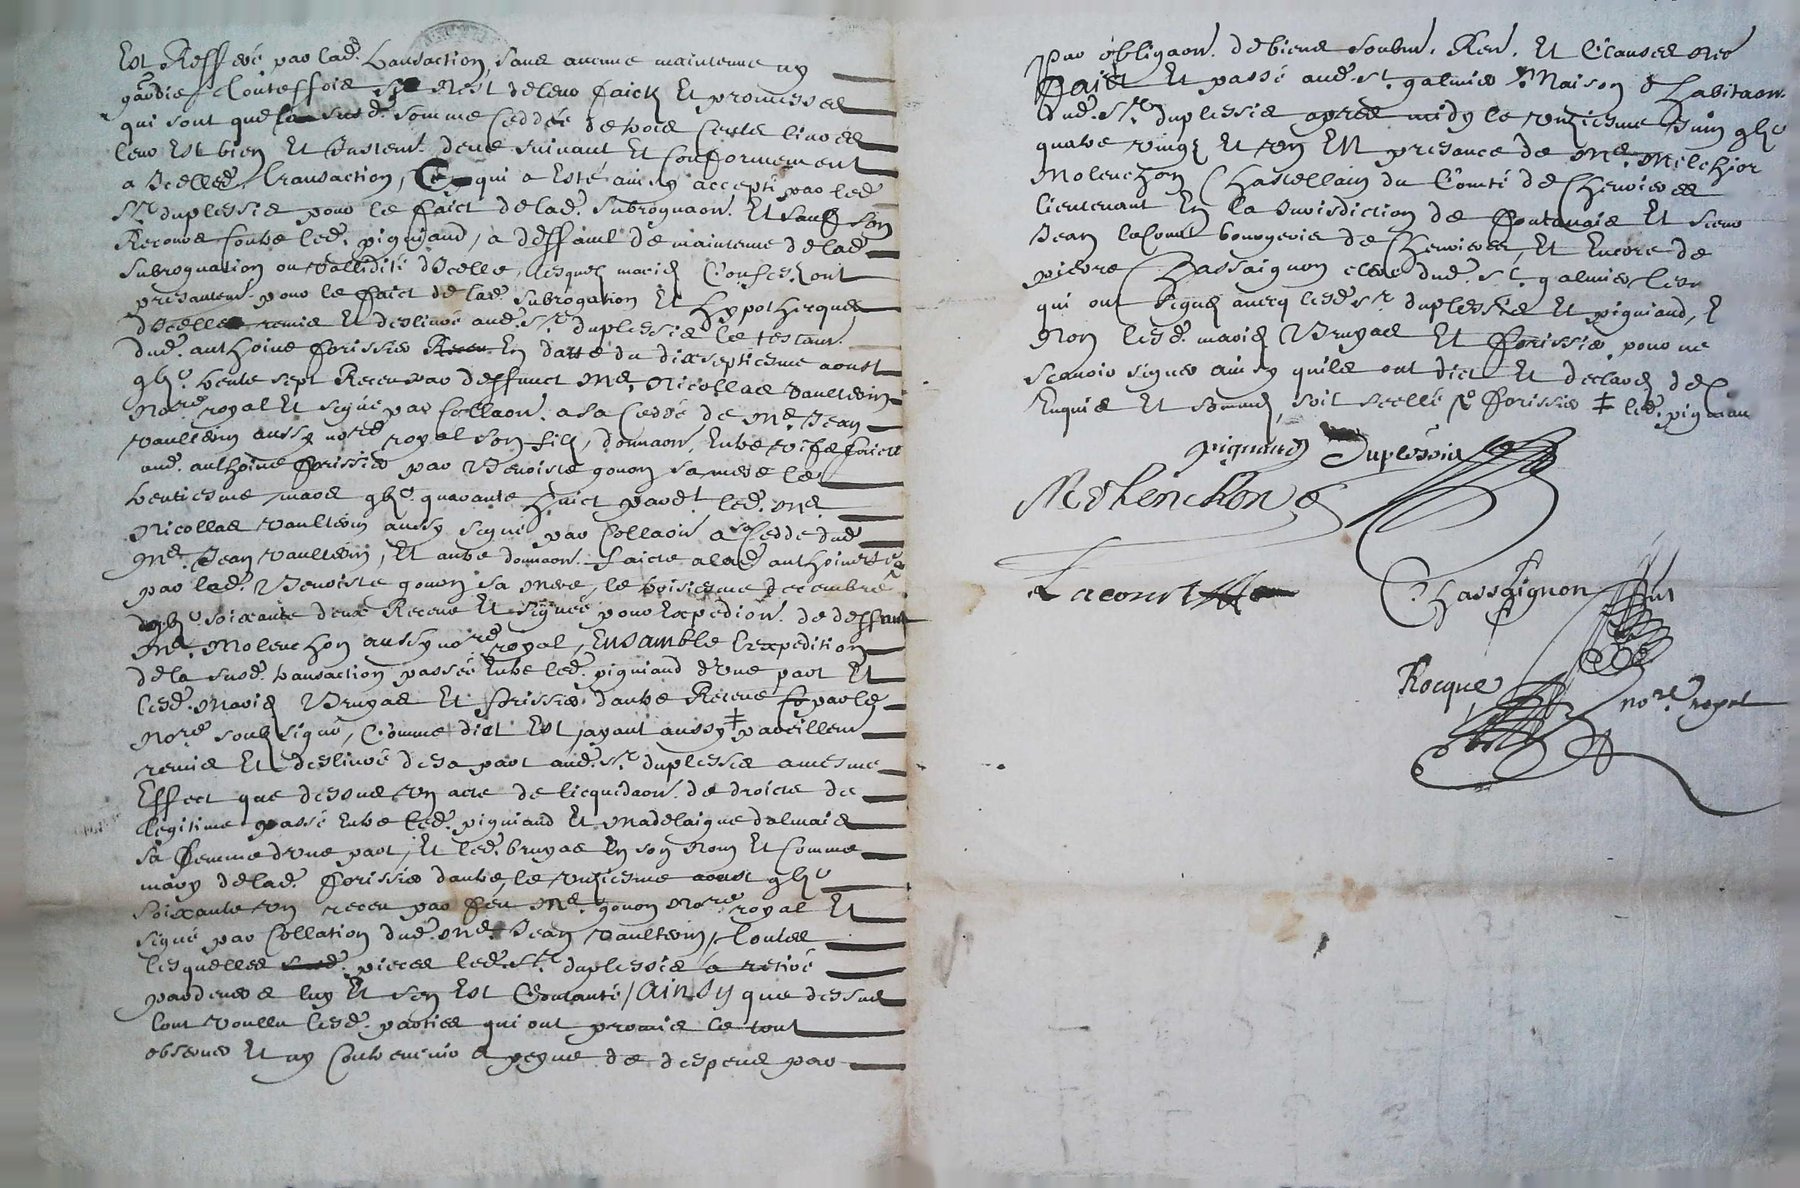 Est Refferé par lad. transaction, sans aucune maintenue ny
gardie, touteffois de leur faictz et promesses
qui sont que susd. somme ceddée de trois centz livres
leur est bien et justem. deue suivant et conformement
a Icelled. transaction, Ce qui a esté ainsy accepté par led.
Sr. duplessis pour le faict de lad. subrogaon. Et sauf son
Recours contre led. pigniand, a deffault de maintenue de lad.
subrogation ou vallidité d'Icelle, lesquelz mariez Confessont
presantem. pour le faict de lad. subrogation Et hypothecques
d'Icelle remis Et deslivré aud. Sr. duplessis le testam.
dud. anthoine forissier En datte du dixseptiesme aoust
trente sept Receu par deffunct Me. Nicollas Vaultrin
Nore. royal Et signé par Collaon. a sa Ceddé de Me. Jean
Vaultrin aussy nore. royal son filz, donnaon. Entre vifz faicte
aud. anthoine forissier par Benoiste gonon sa mere le
trentiesme mars quarante huict pard. led. Me.
Nicollas Vaultrin aussy signé par Collaon. a sa Cedde dud.
Me. Jean Vaultrin, Et autre donnaon. faicte alad. anthoine
par lad. Benoiste gonon sa mere, le troisiesme decembre
soixante deux Receue Et signée pour Expedion. de deffunt
Me. Molenchon aussy nore. royal, Ensamble l'expedition
de la susd. transaction passée Entre led. pigniand d'une part Et
lesd. Mariez Bruyas Et forissier d'autre Receue par le
Nore. soubzsigné, Comme dict Est, ayant aussy ‡ pareillem.
remis Et deslivré de sa part aud. Sr. duplessis a mesme
Effect que dessus un acte de licquidaon. de droicts de
legitime passé Entre led. pigniand Et Madelaigne dalmais
sa femme d'une part, Et led. bruyas En son Nom Et Comme
mary de lad. forissier d'autre, le unziesme aoust
soixante un receu par feu Me. gonon Nore. royal Et
signé par Collation dud. Me. Jean Vaultrin, toutes
lesquelles pieces led. Sr. duplessis a retiré
pardevers luy Et s'en Est Contanté / Ainsy que dessus
l'ont voullu lesd. parties qui ont promis le tout
observer Et ny Contrevenir a peyne de despens par
Par obligaon. de biens soubm. Ren. Et Clauses Nre
Faict Et passé aud. St. galmier Maison d'habitaon.
dud. Sr. duplessis apres midy le unziesme Juin
quatre vingtz Et un En presance de Me. Melchior
Molenchon Chastellain du Comté de Chevrieres
lieutenant En la Jurisdiction de fontanais Et sieur
Jean laCourt bourgeois de Chevrieres, Et Encore de
pierre Chassaignon clerc dud. St. galmier
qui ont signez avecq lesd. Sr. duplessis Et pigniand, Et
Non lesd. mariez Bruyas Et forissier, pour ne
scavoir signer ainsy quilz ont dict Et declarez de
Enquis Et sommez, soit scellé forissier ‡ led. pigniand
pigniand Duplessis
Molenchon
Lacourt
Chassaignon
Rocque
nore. royal